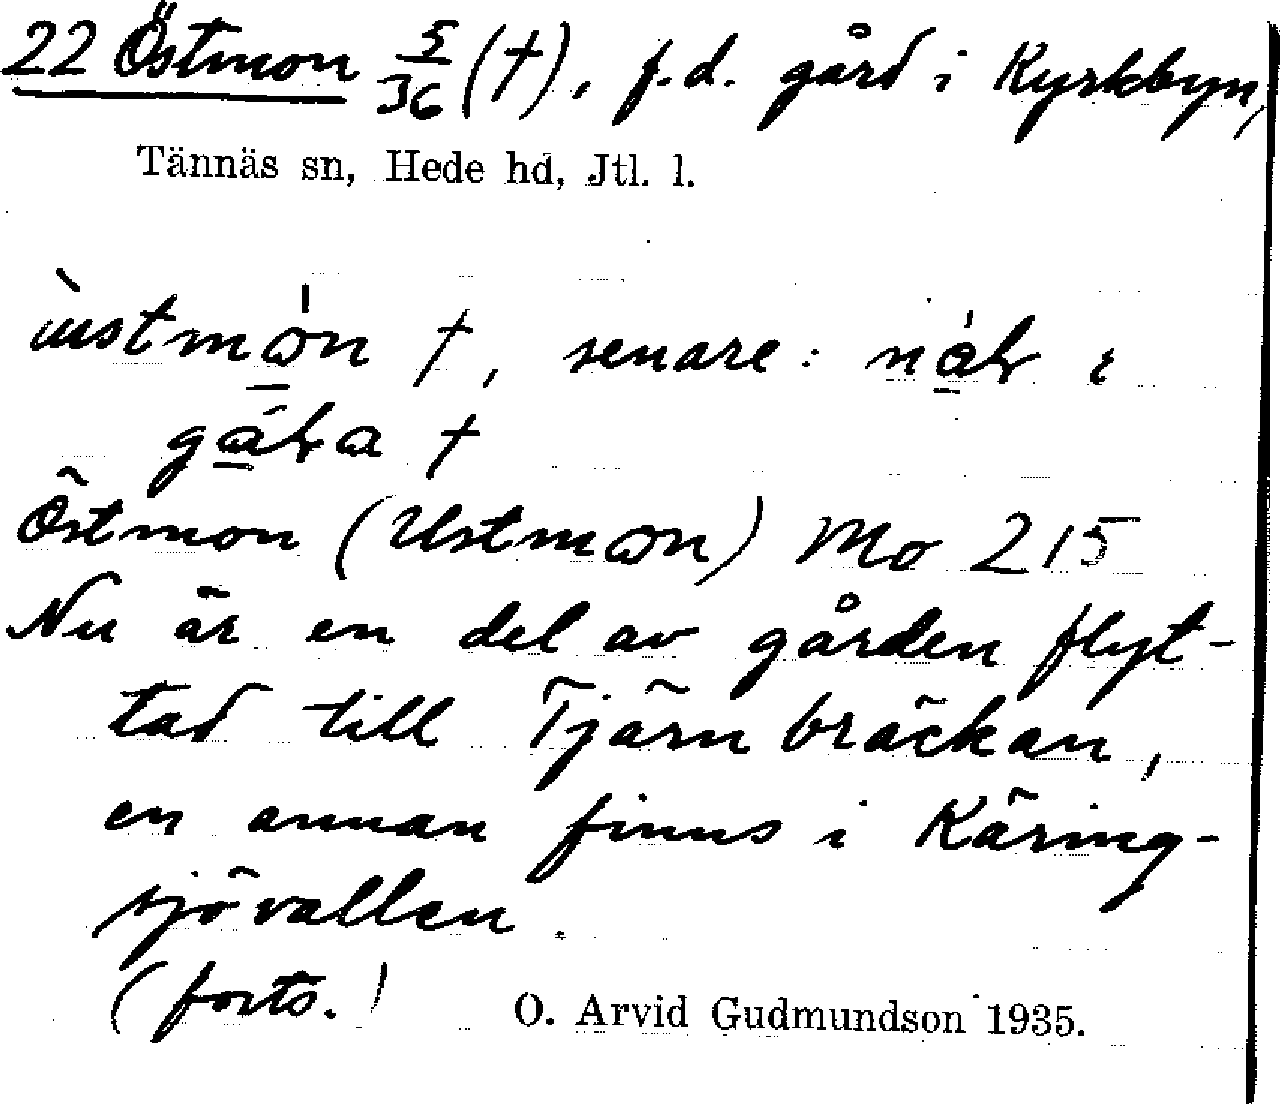 22 Östmon 5/36 (†), f.d. gård i Kyrkbyn,
Tännäs sn, Hede hd, Jtl. l.
†, senare: i
†
Östmon (Ustmon) Mo 215
Nu är en del av gården flyt-
tad till Tjärnbräckan,
en annan finns i Käring-
sjövallen.
(forts.)
O. Arvid Gudmundson 1935.